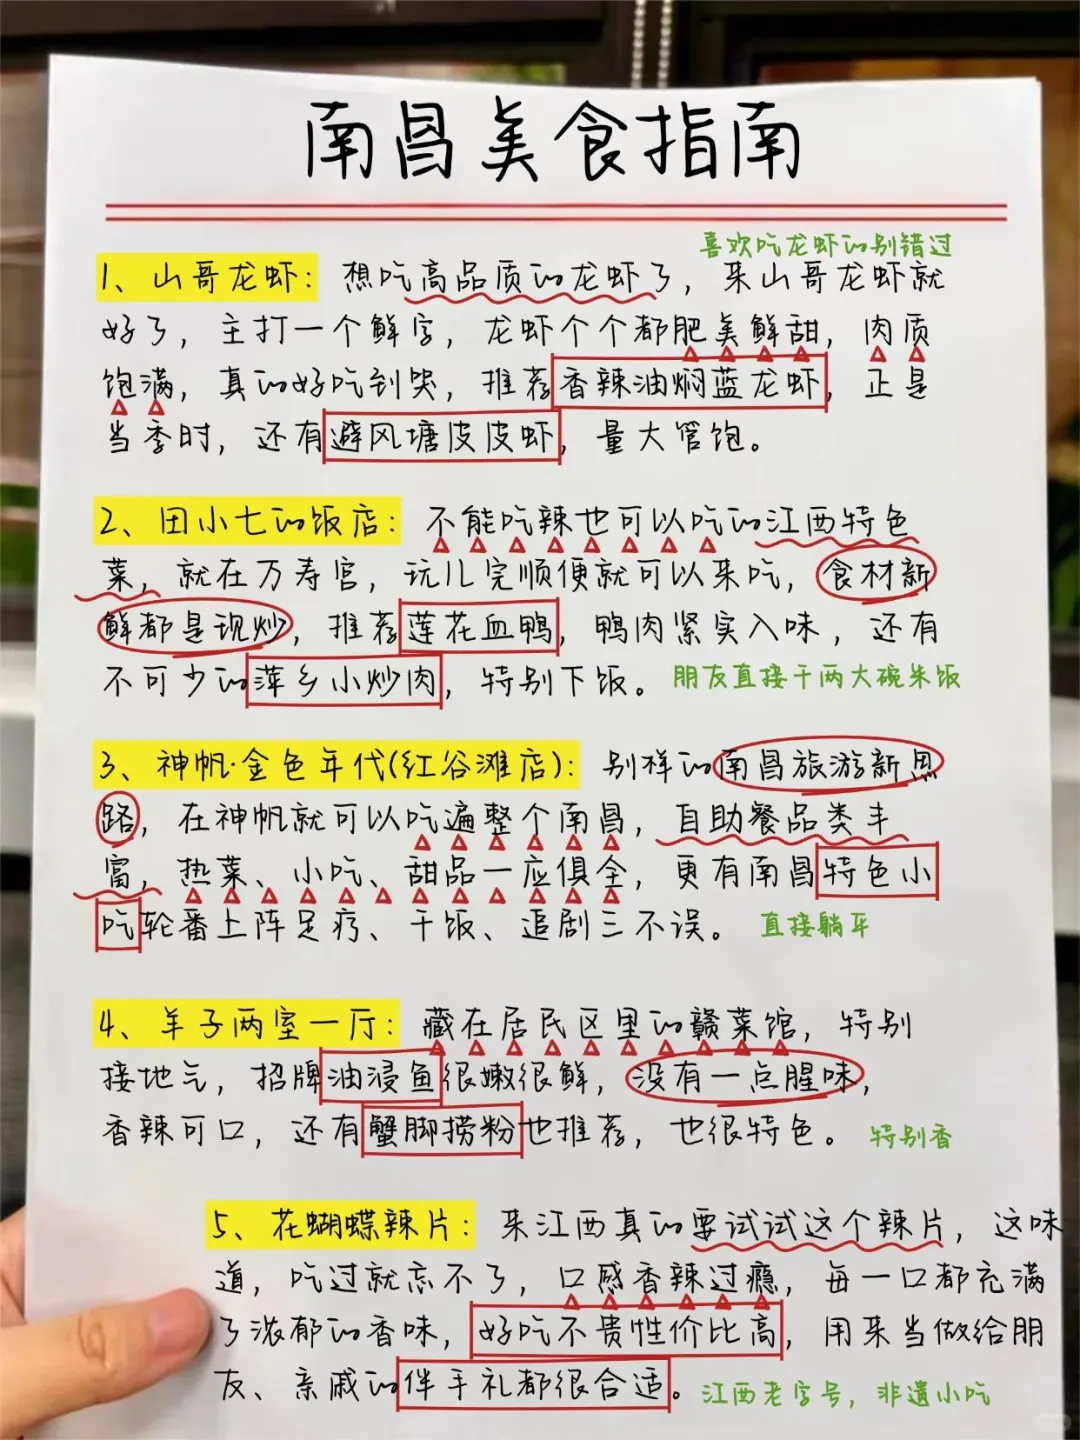 南昌美食指南
喜欢吃龙虾的别错过
1、山哥龙虾：想吃高品质的龙虾了，来山哥龙虾就
好了，主打一个鲜字，龙虾个个都肥美鲜甜，肉质
饱满，真的好吃到哭，推荐香辣油焖蓝龙虾，正是
当季时，还有避风塘皮皮虾，量大管饱。
2、田小七的饭店：不能吃辣也可以吃的江西特色
菜，就在万寿宫，玩儿完顺便就可以来吃，食材新
鲜都是现炒，推荐莲花血鸭，鸭肉紧实入味，还有
不可少的萍乡小炒肉，特别下饭。朋友直接干两大碗米饭
3、神帆·金色年代(红谷滩店)：别样的南昌旅游新思
路，在神帆就可以吃遍整个南昌，自助餐品类丰
富，热菜、小吃、甜品一应俱全，更有南昌特色小
吃轮番上阵足疗、干饭、追剧三不误。直接躺平
4、羊子两室一厅：藏在居民区里的赣菜馆，特别
接地气，招牌油浸鱼很嫩很鲜，没有一点腥味，
香辣可口，还有蟹脚捞粉也推荐，也很特色。特别香
5、花蝴蝶辣片：来江西真的要试试这个辣片，这味
道，吃过就忘不了，口感香辣过瘾，每一口都充满
了浓郁的香味，好吃不贵性价比高，用来当做给朋
友、亲戚的伴手礼都很合适。江西老字号，非遗小吃